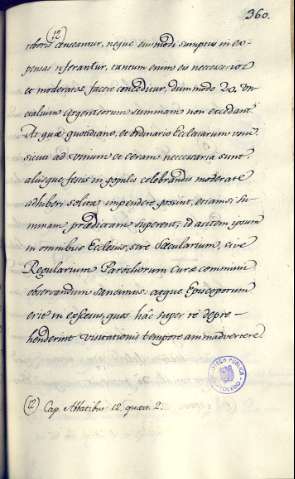 360.
(12)
censeantur, neque eiusmodi sumptus in ex-
pensas referantur, tantum enim eis necessario
et moderatos, facere conceditur, dummodo 20.
argenteorum summam non excedant
At quæ quotidiano, et ordinario Ecclesiarum
ad vinum et ceram necessaria sunt
aliisque festis in populis celebrandis moderate
adhiberi solita impendere possint, etiamsi sum-
mam prædictam superent; id autem ipsum
in omnibus Ecclesiis, sive Sæcularium, sive
Regularium Parochorum curæ commissis
observandum sancimus: atque Episcoporum
erit in excessus, quos hac super re depre-
henderint visitationis tempore animadvertere
(12) Cap. Abbatibus 12. quæst. 2.
BIBLIOTECA PUBLICA
TOLEDO